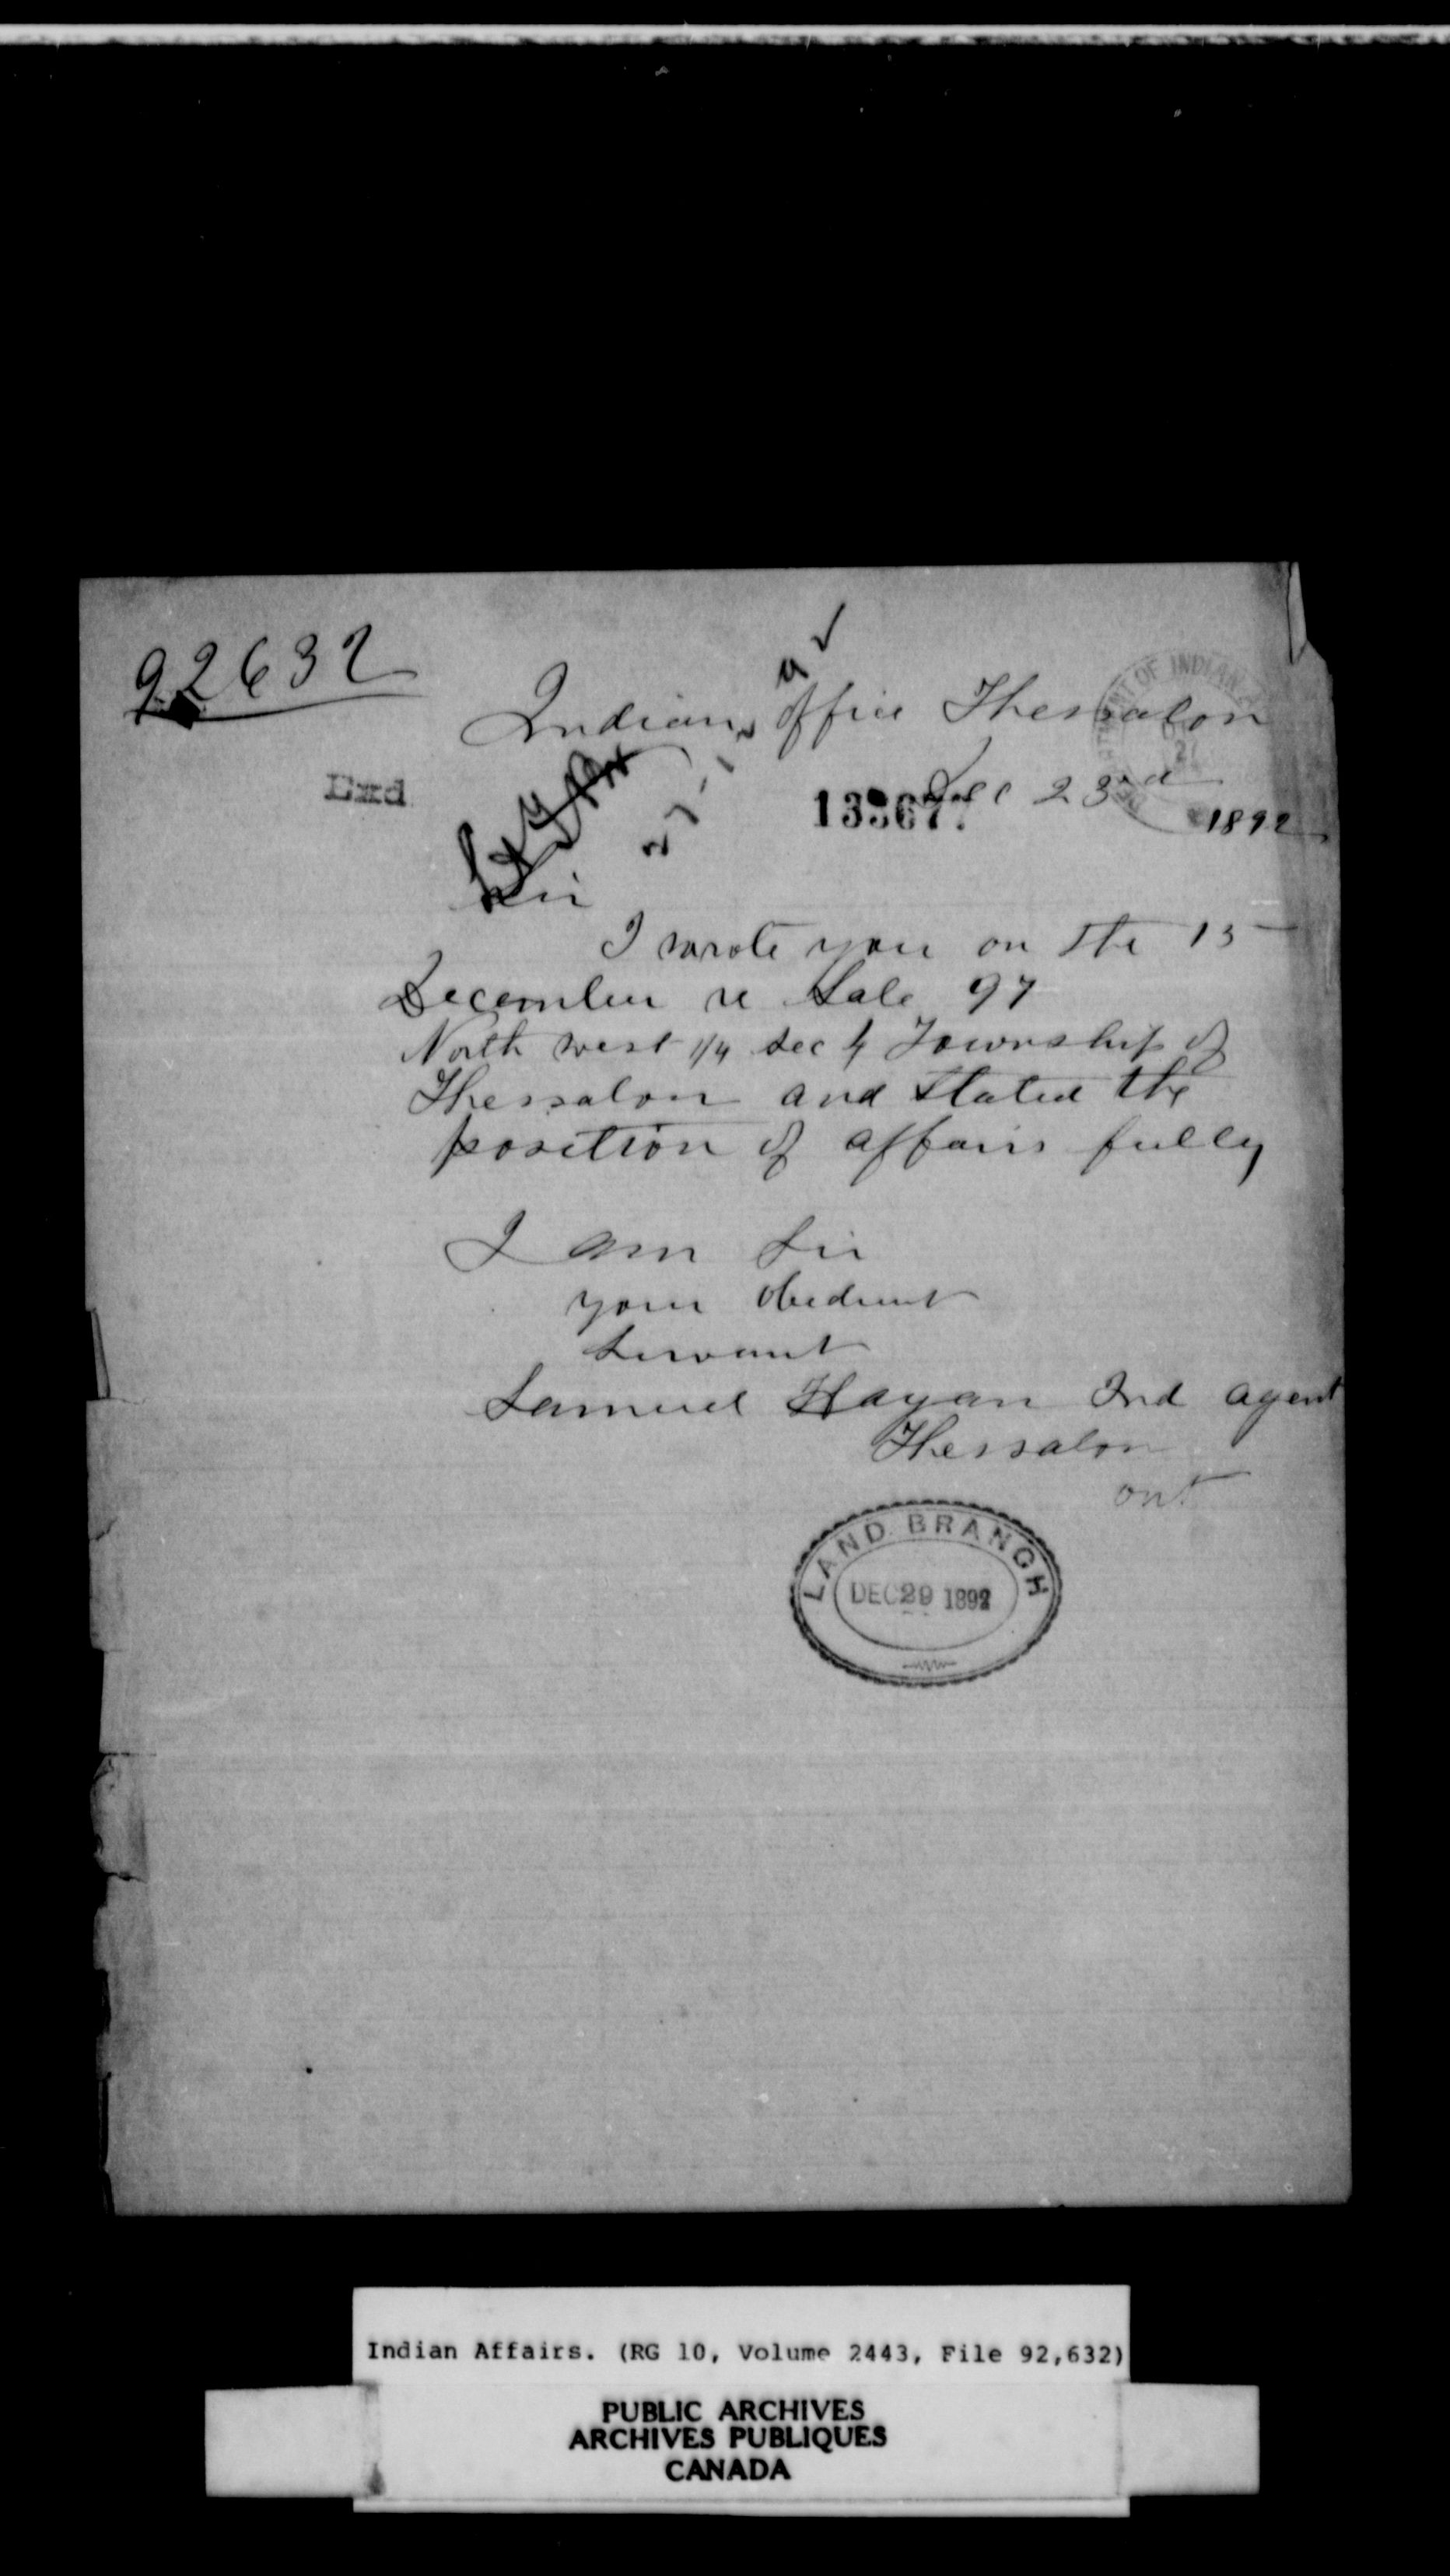 92632
Indian Office Thessalon
DEPARTMENT OF INDIAN
27
End
Dec 23rd
13367.
1892
Sir
I wrote you on the 15
December re Sale 97
North west 1/4 Sec 4 Township of
Thessalon and stated the
position of affairs fully
I am Sir
your obedient
Servant
Samuel Hagan Ind agent
Thessalon
ont
LAND BRANCH
DEC 29 1892
Indian Affairs. (RG 10, Volume 2443, File 92,632)
PUBLIC ARCHIVES
ARCHIVES PUBLIQUES
CANADA